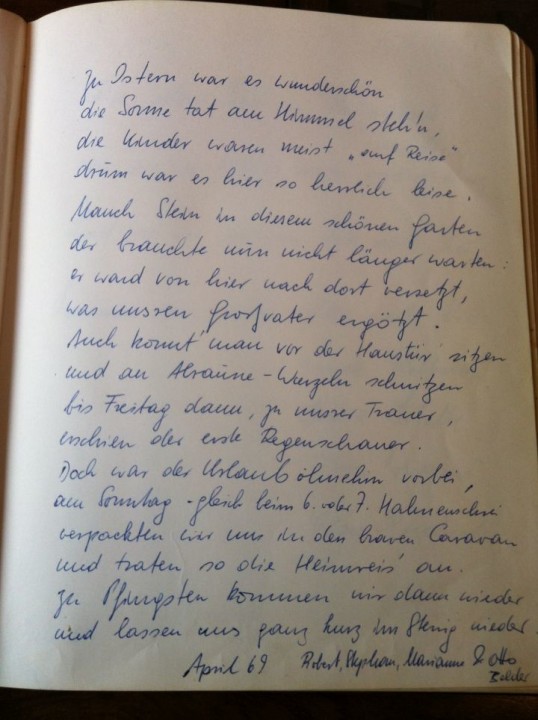 Zu Ostern war es wunderschön
die Sonne tat am Himmel steh'n,
die Kinder waren meist „auf Reise"
drum war es hier so herrlich leise.
Manch Stein in diesem schönen Garten
der brauchte nun nicht länger warten:
er ward von hier nach dort versetzt,
was unsren Großvater ergötzt.
Auch konnt' man vor der Haustür sitzen
und an Alraune-Wurzeln schnitzen
bis Freitag dann, zu unsrer Trauer,
erschien der erste Regenschauer.
Doch war der Urlaub ohnehin vorbei,
am Sonntag - gleich beim 6. oder 7. Hahnenschrei
verpackten wir uns in den braven Caravan
und traten so die Heimreis' an.
Zu Pfingsten kommen wir dann wieder
und lassen uns ganz kurz im nieder.
April 69 Robert, Stephan, Marianne & Otto